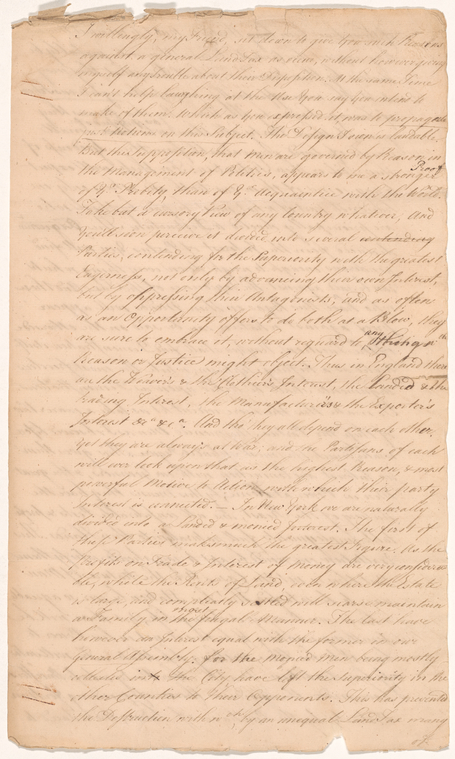 Willingly, my Friend, set down to give You such Reasons
against a general Land Tax as mine, without however giving
myself any trouble about their Supposition. At the same Time
I can't help laughing at the Use You say You intend to
make of them. Which as You express'd it was to propagate
just Notions on this Subject. The Design I own is laudable,
But the Supposition, that Men are governed by Reason in
the Management of Politics, appears to be a stronger Proof
of Yr. Probity, than of Yr. Acquaintance with the World.
Take but a cursory View of any Country whatever, And
You'll soon perceive it divided into several contending
Parties, contending for the Superiority with the greatest
Eagerness, not only by advancing their own Interest,
but by oppressing their Antagonists, and as often
as an Opportunity offers to do both at a Blow, they
are sure to embrace it, without reguard to any thing wch.
Reason or Justice might object. Thus in England there
are the Dower's & the Clothier's Interest, the Landed & the
trading Interest, the Manufacturer's & the Exporter's
Interest &c. &c. And tho they all depend on each other,
Yet they are always at War; and the Partisans of each
will ever look upon that as the highest Reason, & most
powerful Motive to Action, with which their party
Interest is connected. — In New York we are naturally
divided into a Landed & monied Interest. The first of
these Parties makes much the greatest Figure, As the
Profits on Trade & Interest of Money are very considera
ble, while the Rents of Land, even where the Estate
is large, and compleatly settled will scarse maintain
a Family in the most frugal Manner. The last have
however an Interest equal with the former in our
General Assembly. For the Monied Men being mostly
situated in the City have left the Superiority in the
other Counties to Their Opponents. This has prevented
the Destruction with wch. by an unequal Land Tax many
of